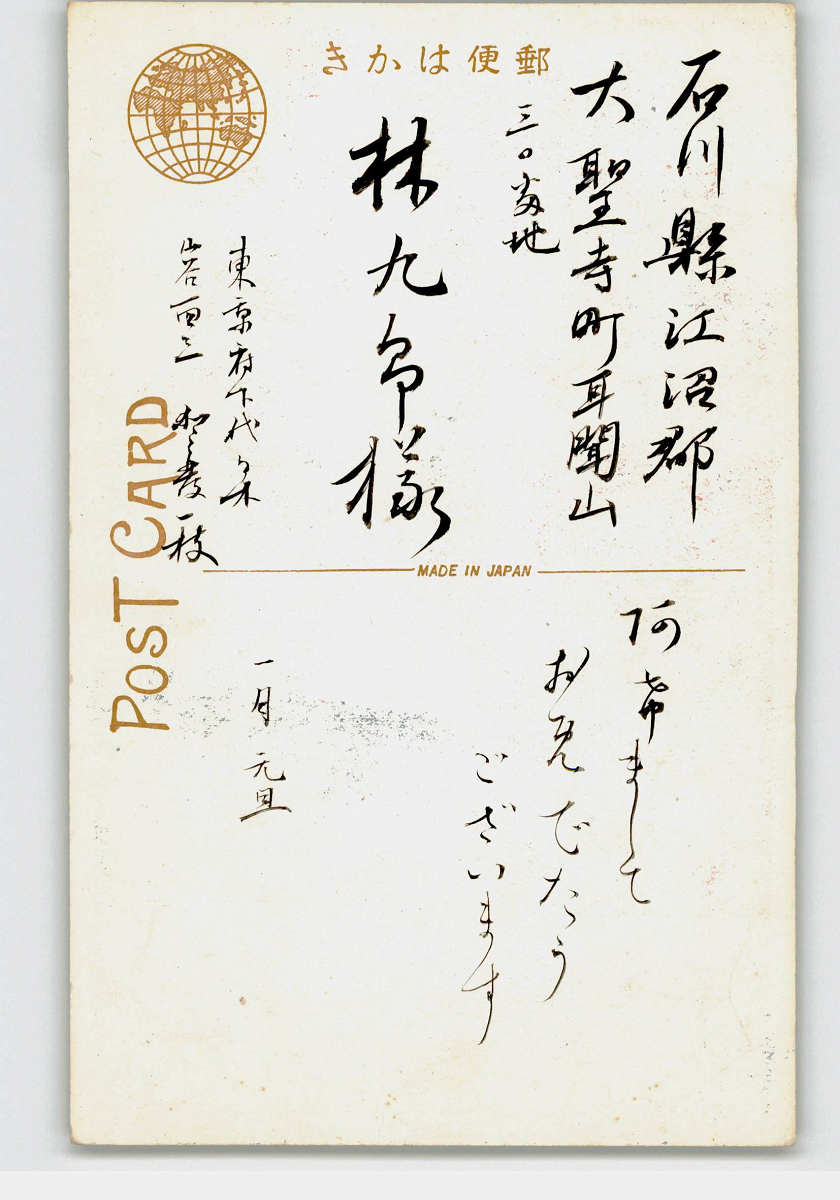 郵便はかき
石川縣江沼郡
大聖寺町耳聞山
三〇番地
林九郎様
東京府下代々木
山谷百三 一枝
POST CARD
MADE IN JAPAN
阿希まして
お免でたう
ございます
一月 元旦